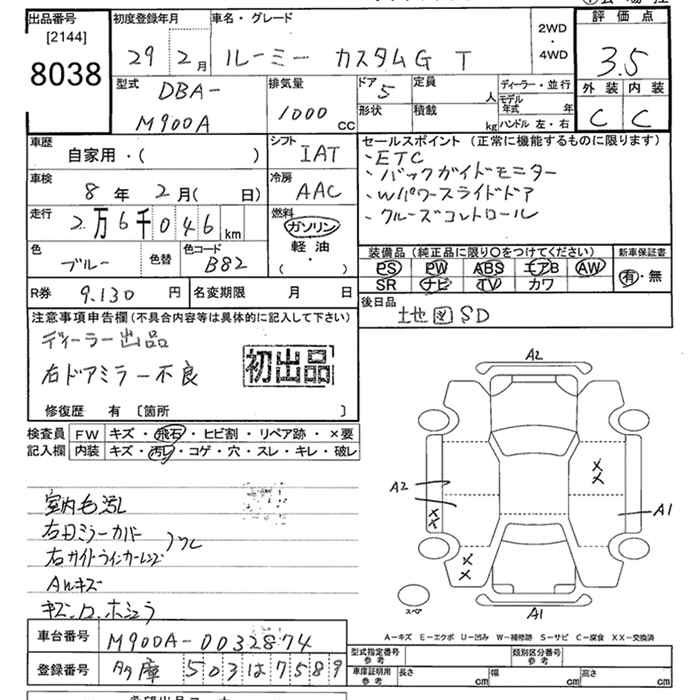 出品番号
[2144]
8038
初度登録年月
29 2月
車名・グレード
ルーミー カスタムG T
2WD
・
4WD
評価点
3.5
外装 内装
C C
型式
DBA-
M900A
排気量
1000 CC
ドア 5
形状
定員 人
積載 kg
ディーラー・並行
モデル年式 年
ハンドル 左・右
車歴
自家用・( )
シフト
IAT
車検
8年 2月( 日)
冷房
AAC
走行
2万6千046km
燃料
ガソリン
軽油
( ・ )
色
ブルー
色替
色コード
B82
R券 9.130円
名変期限 月 日
セールスポイント (正常に機能するものに限ります)
、ETC
、バックガイドモニター
、Wパワースライドドア
、クルーズコントロール
装備品(純正品に限り○をつけてください)
PS PW ABS エアB AW
SR ナビ TV カワ
新車保証書
有・無
後日品
地図SD
注意事項申告欄(不具合内容等は具体的に記入して下さい)
ディーラー出品
右ドアミラー不良
初出品
修復歴 有 〔箇所 〕
検査員
記入欄
FW キズ・飛石・ヒビ割・リペア跡・×要
内装 キズ・汚レ・コゲ・穴・スレ・キレ・破レ
右Dミラーカバー
右サイドウインカーレンズ
AWキズ
A2
A2
A1
A1
XX
XX
XX
スペア
A－キズ E－エクボ U－凹み W－補修跡 S－サビ C－腐食 XX－交換済
車台番号 M900A-0032874
登録番号 多摩 503は7589
型式指定番号
参考
類別区分番号
参考
車庫証明用
参考
長さ cm
幅 cm
高さ cm